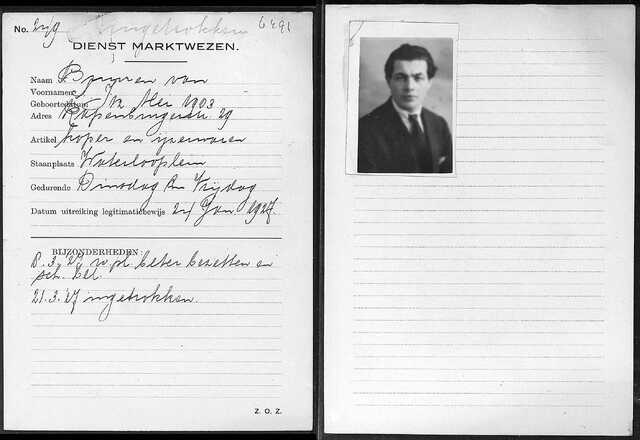 No. 249 Ingetrokken 6491
DIENST MARKTWEZEN.
Naam van
Voornamen
Geboortedatum 12 Mei 1903
Adres Rapenburgerstr 29
Artikel koper en ijzerwaren
Staanplaats Waterlooplein
Gedurende Dinsdag en Vrijdag
Datum uitreiking legitimatiebewijs 24 Jan. 1927.
BIJZONDERHEDEN:
8.3.27 pl. beter bezetten en
sch. bet.
21.3.27 ingetrokken.
Z. O. Z.